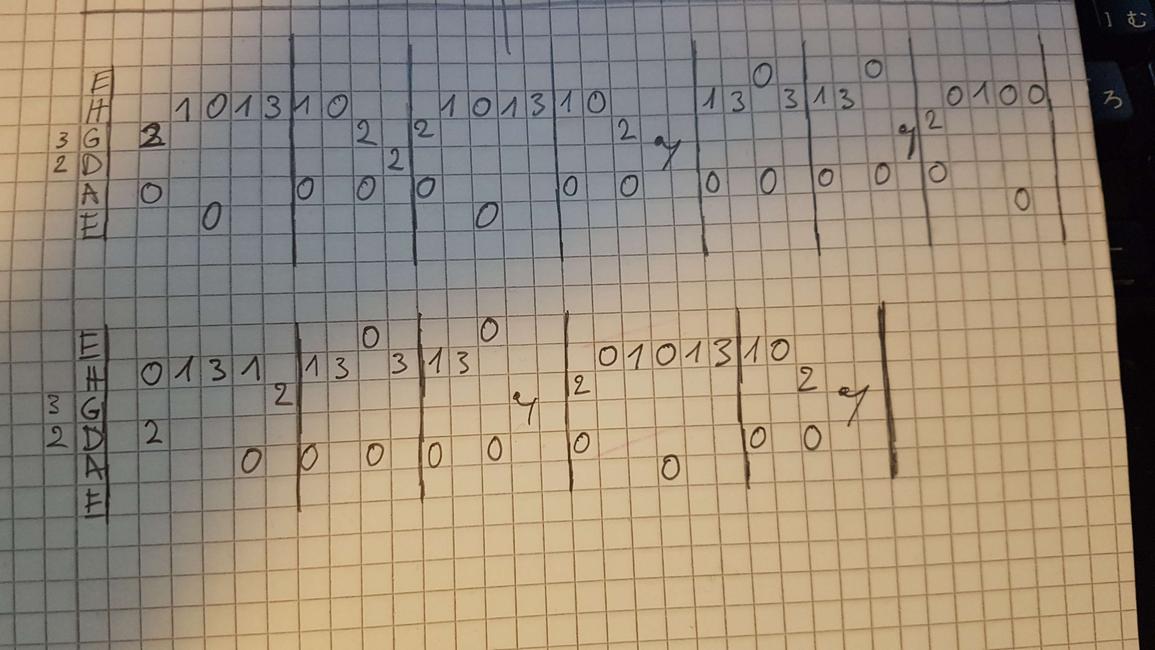 E 0 0
H 1 0 1 3 | 1 0 | 1 0 1 3 | 1 0 | 1 3 3 | 1 3 | 0 1 0 0
3 G 2 | 2 | 2 | 2 | | | 2
2 D | 2
A 0 | 0 0 | 0 | 0 0 | 0 0 | 0 0 | 0
E 0 0 0
E 0 0
H 0 1 3 1 | 1 3 3 | 1 3 | 0 1 0 1 3 | 1 0
3 G 2 | | | 2 | 2
2 D 2
A 0 | 0 0 | 0 0 | 0 | 0 0
E 0
む
ろ